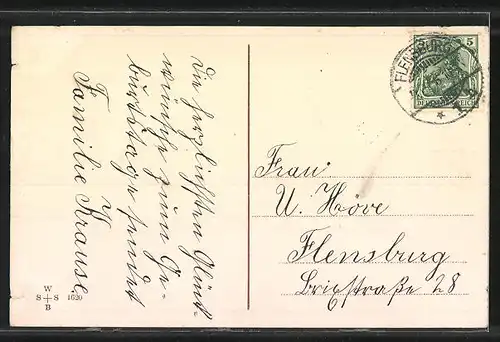 Die herzlichsten Glück-
wünsche zum Ge-
burtstage sendet
Familie Krause
W
S + S 1620
B
FLENSBURG
5
DEUTSCHES REICH
Frau
U. Höve
Flensburg
28